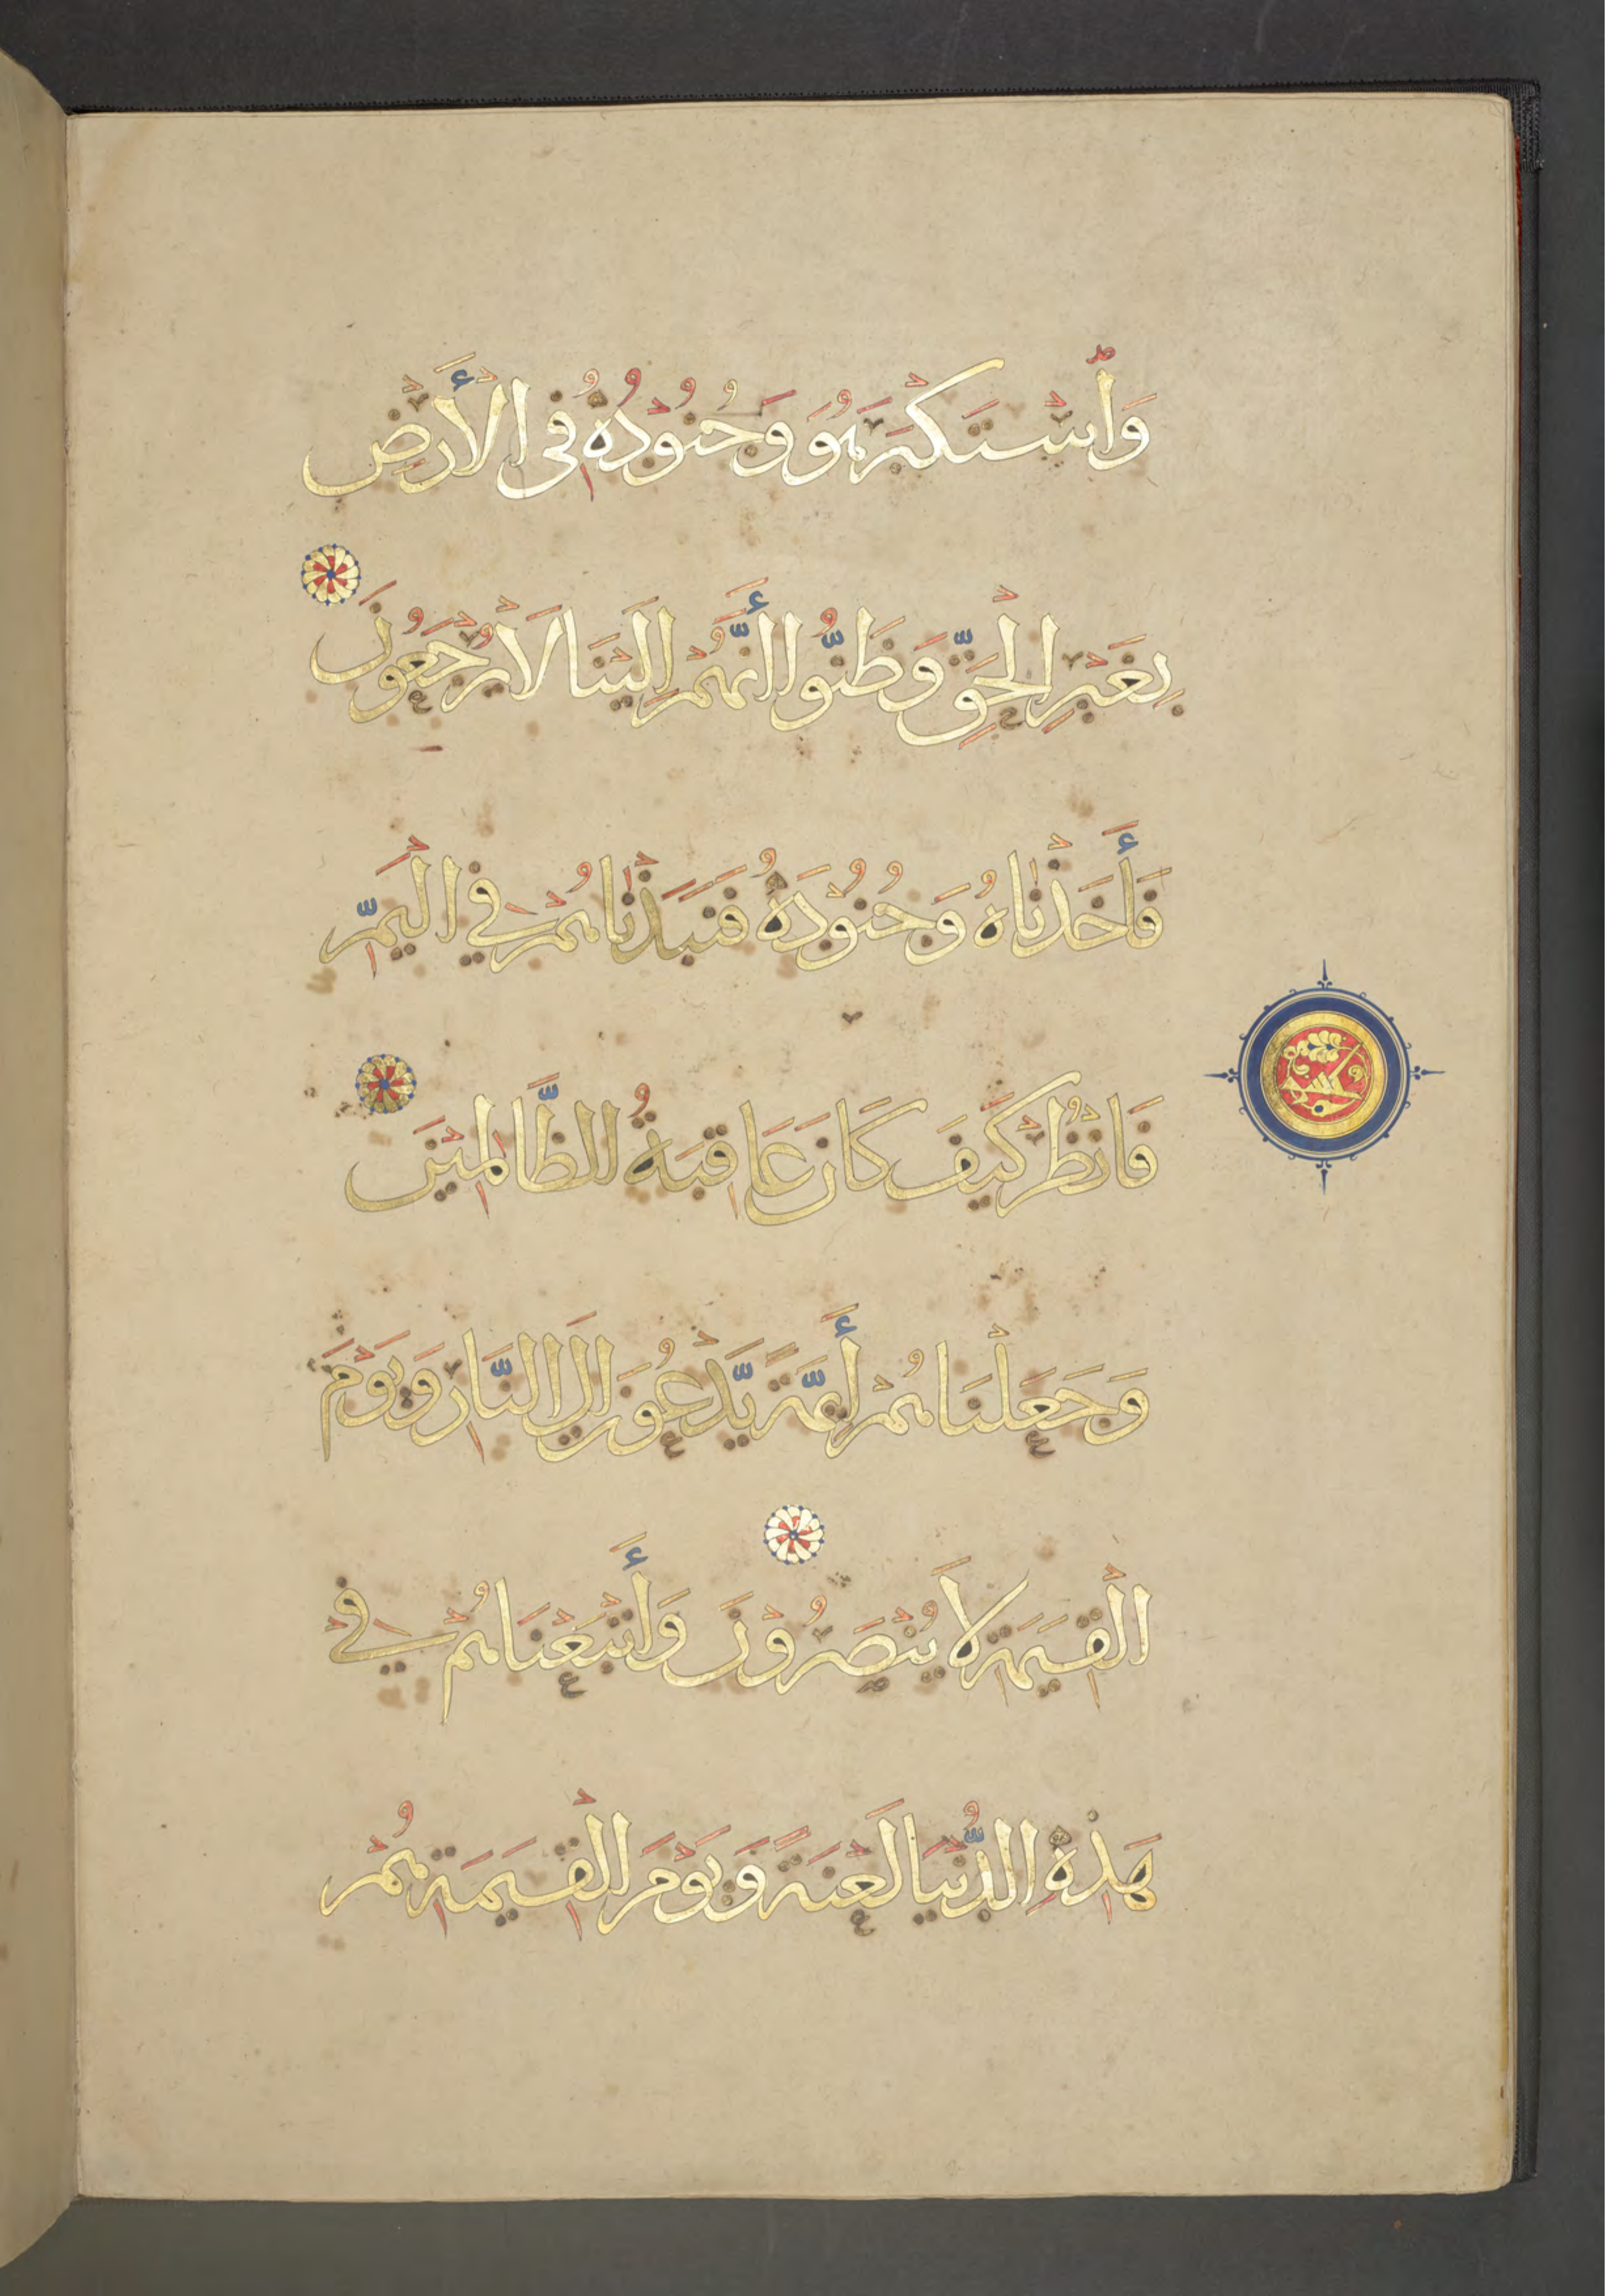 وَٱسْتَكْبَرَ هُوَ وَجُنُودُهُ فِى الْأَرْضِ
بِغَيْرِ الْحَقِّ وَظَنُّوا أَنَّهُمْ إِلَيْنَا لَا يُرْجَعُونَ
فَأَخَذْنَاهُ وَجُنُودَهُ فَنَبَذْنَاهُمْ فِي الْيَمِّ
فَانْظُرْ كَيْفَ كَانَ عَاقِبَةُ الظَّالِمِينَ
وَجَعَلْنَاهُمْ أَئِمَّةً يَّدْعُونَ إِلَى النَّارِ وَيَوْمَ
الْقِيَمَةِ لَا يُنْصَرُونَ وَأَتْبَعْنَاهُمْ فِي
هَذِهِ الدُّنْيَا لَعْنَةً وَيَوْمَ الْقِيَمَةِ هُمْ